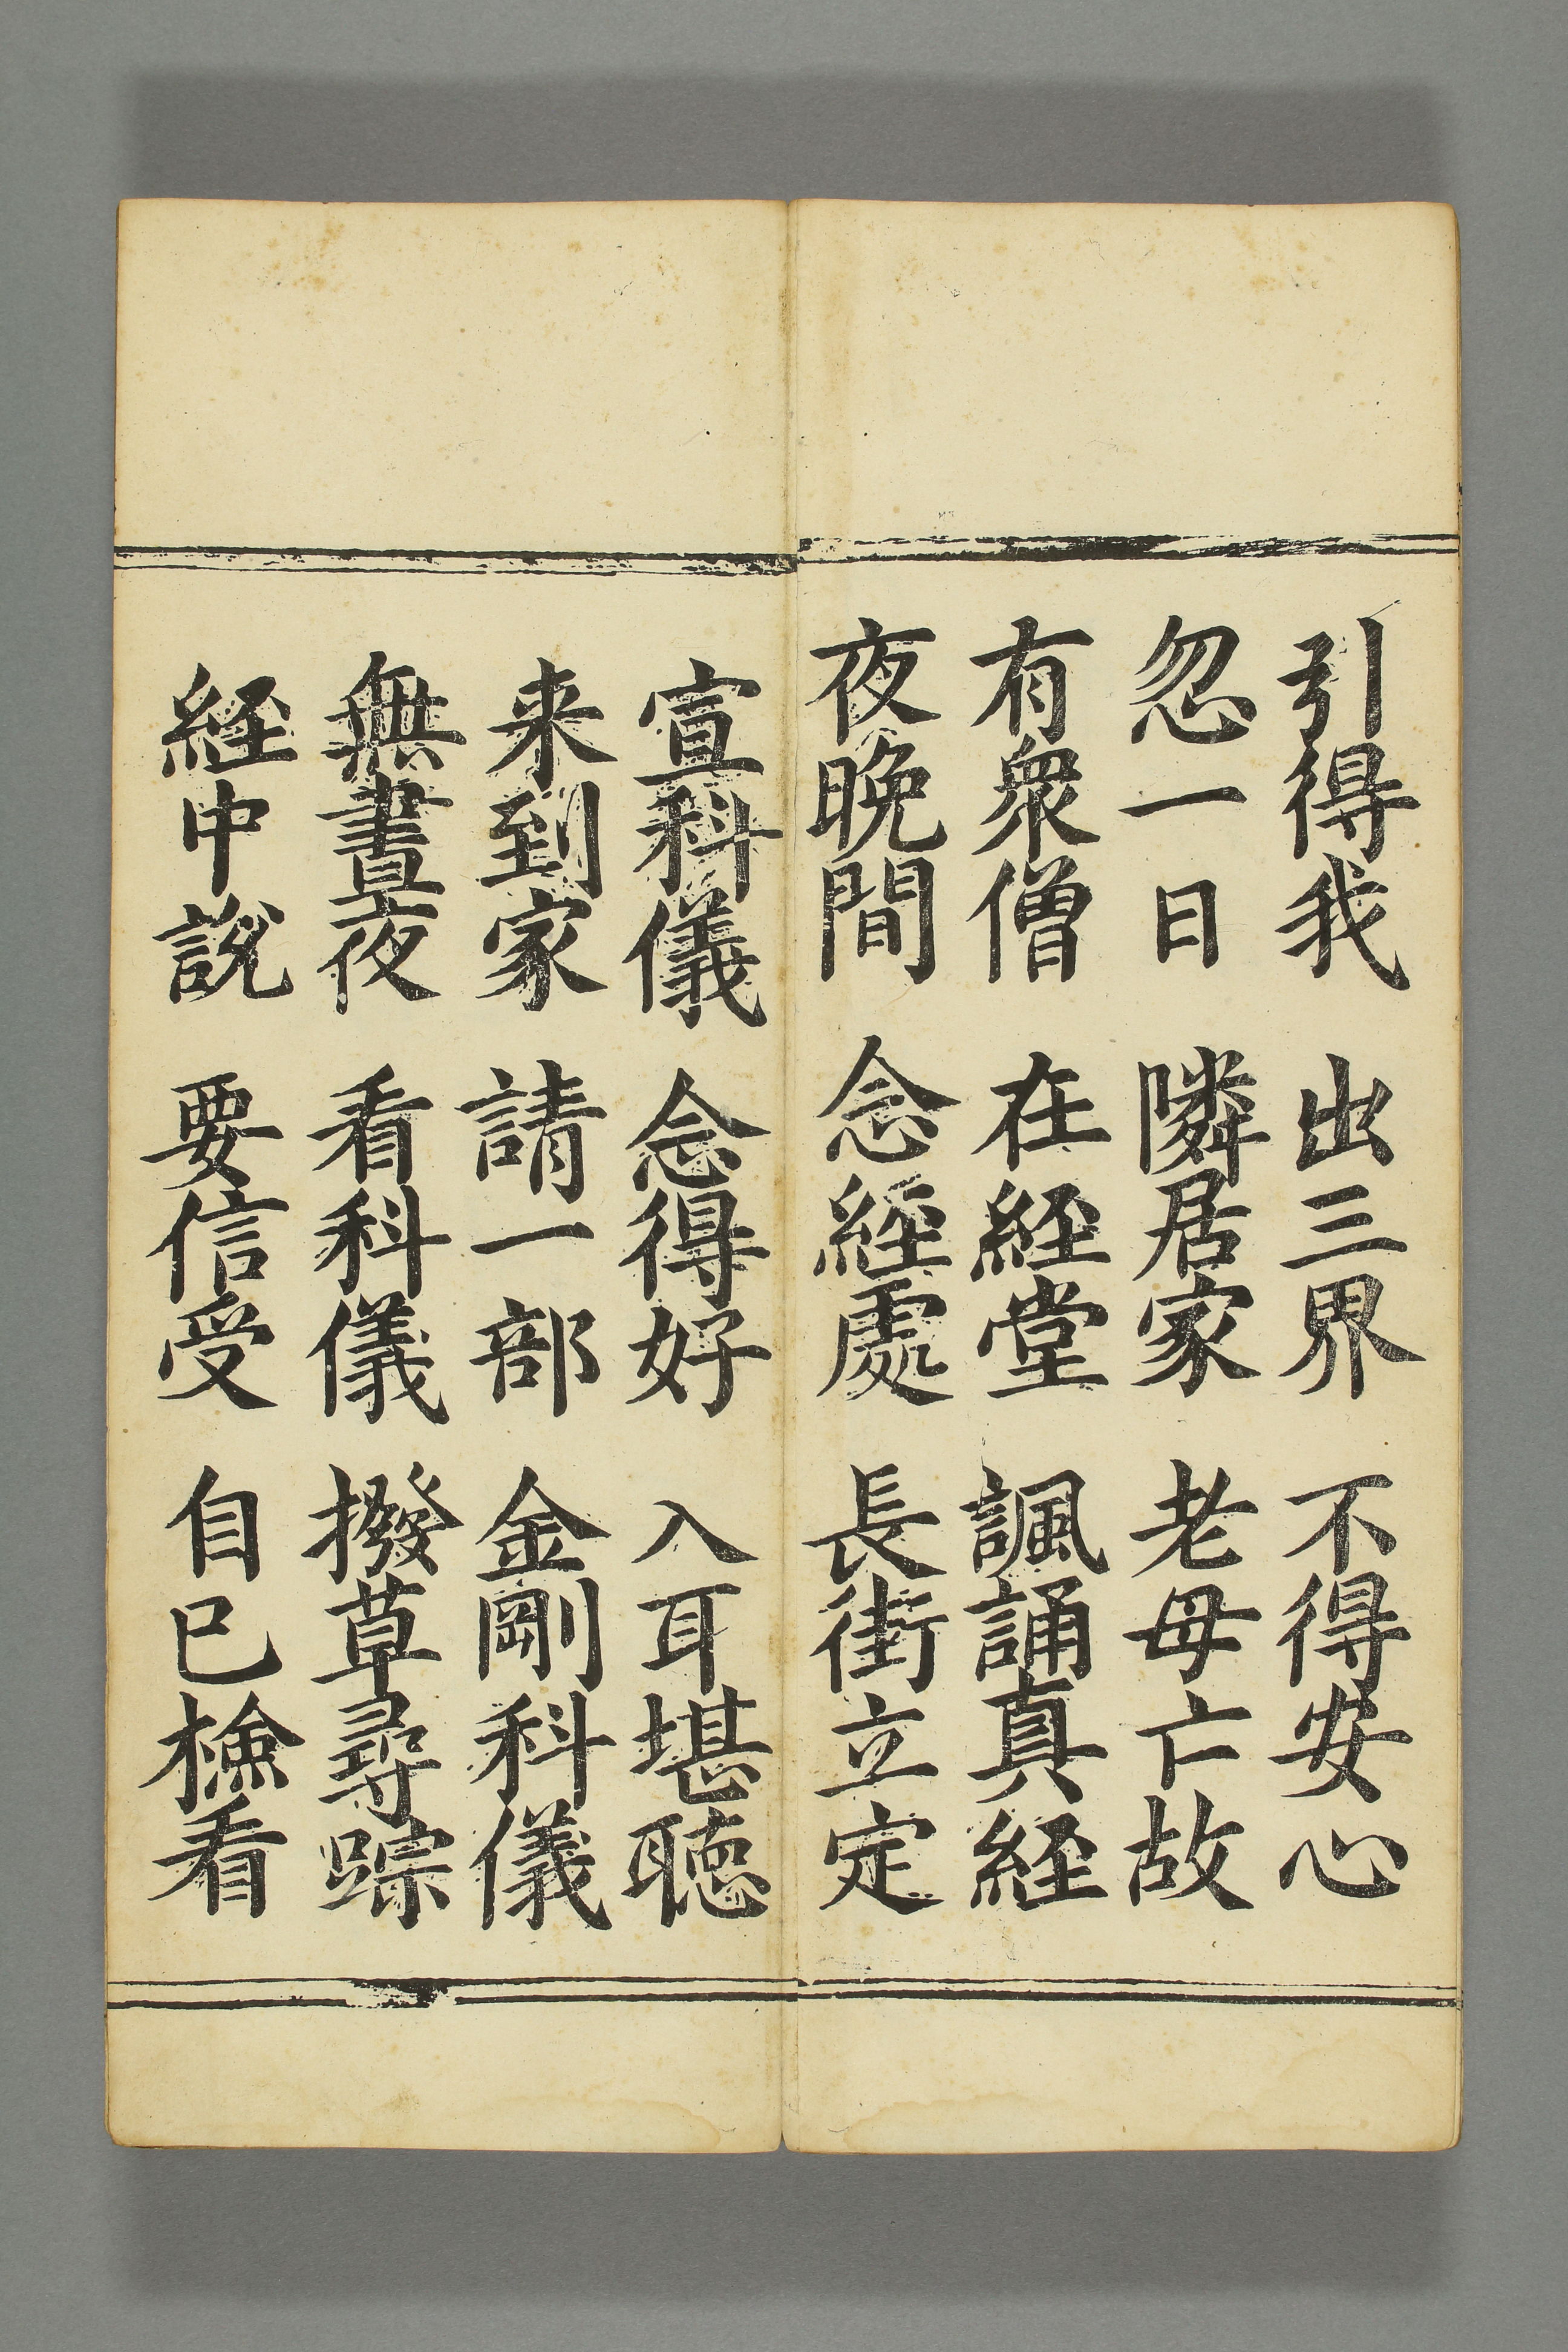 引得我 出三界 不得安心
忽一日 隣居家 老母亡故
有衆僧 在経堂 諷誦真経
夜晩間 念経處 長街立定
宣科儀 念得好 入耳堪聴
来到家 請一部 金剛科儀
無晝夜 看科儀 撥草尋踪
経中説 要信受 自已檢看